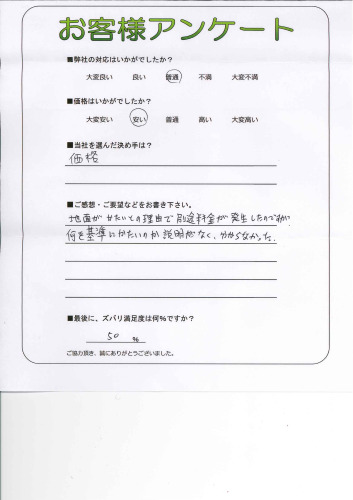 お客様アンケート
■弊社の対応はいかがでしたか?
大変良い 良い 普通 不満 大変不満
■価格はいかがでしたか?
大変安い 安い 普通 高い 大変高い
■当社を選んだ決め手は?
価格
■ご感想・ご要望などをお書き下さい。
地面がかたいとの理由で別途料金が発生したのですが
何を基準にかたいのか説明がなく、分からなかった。
■最後に、ズバリ満足度は何%ですか?
50 %
ご協力頂き、誠にありがとうございました。